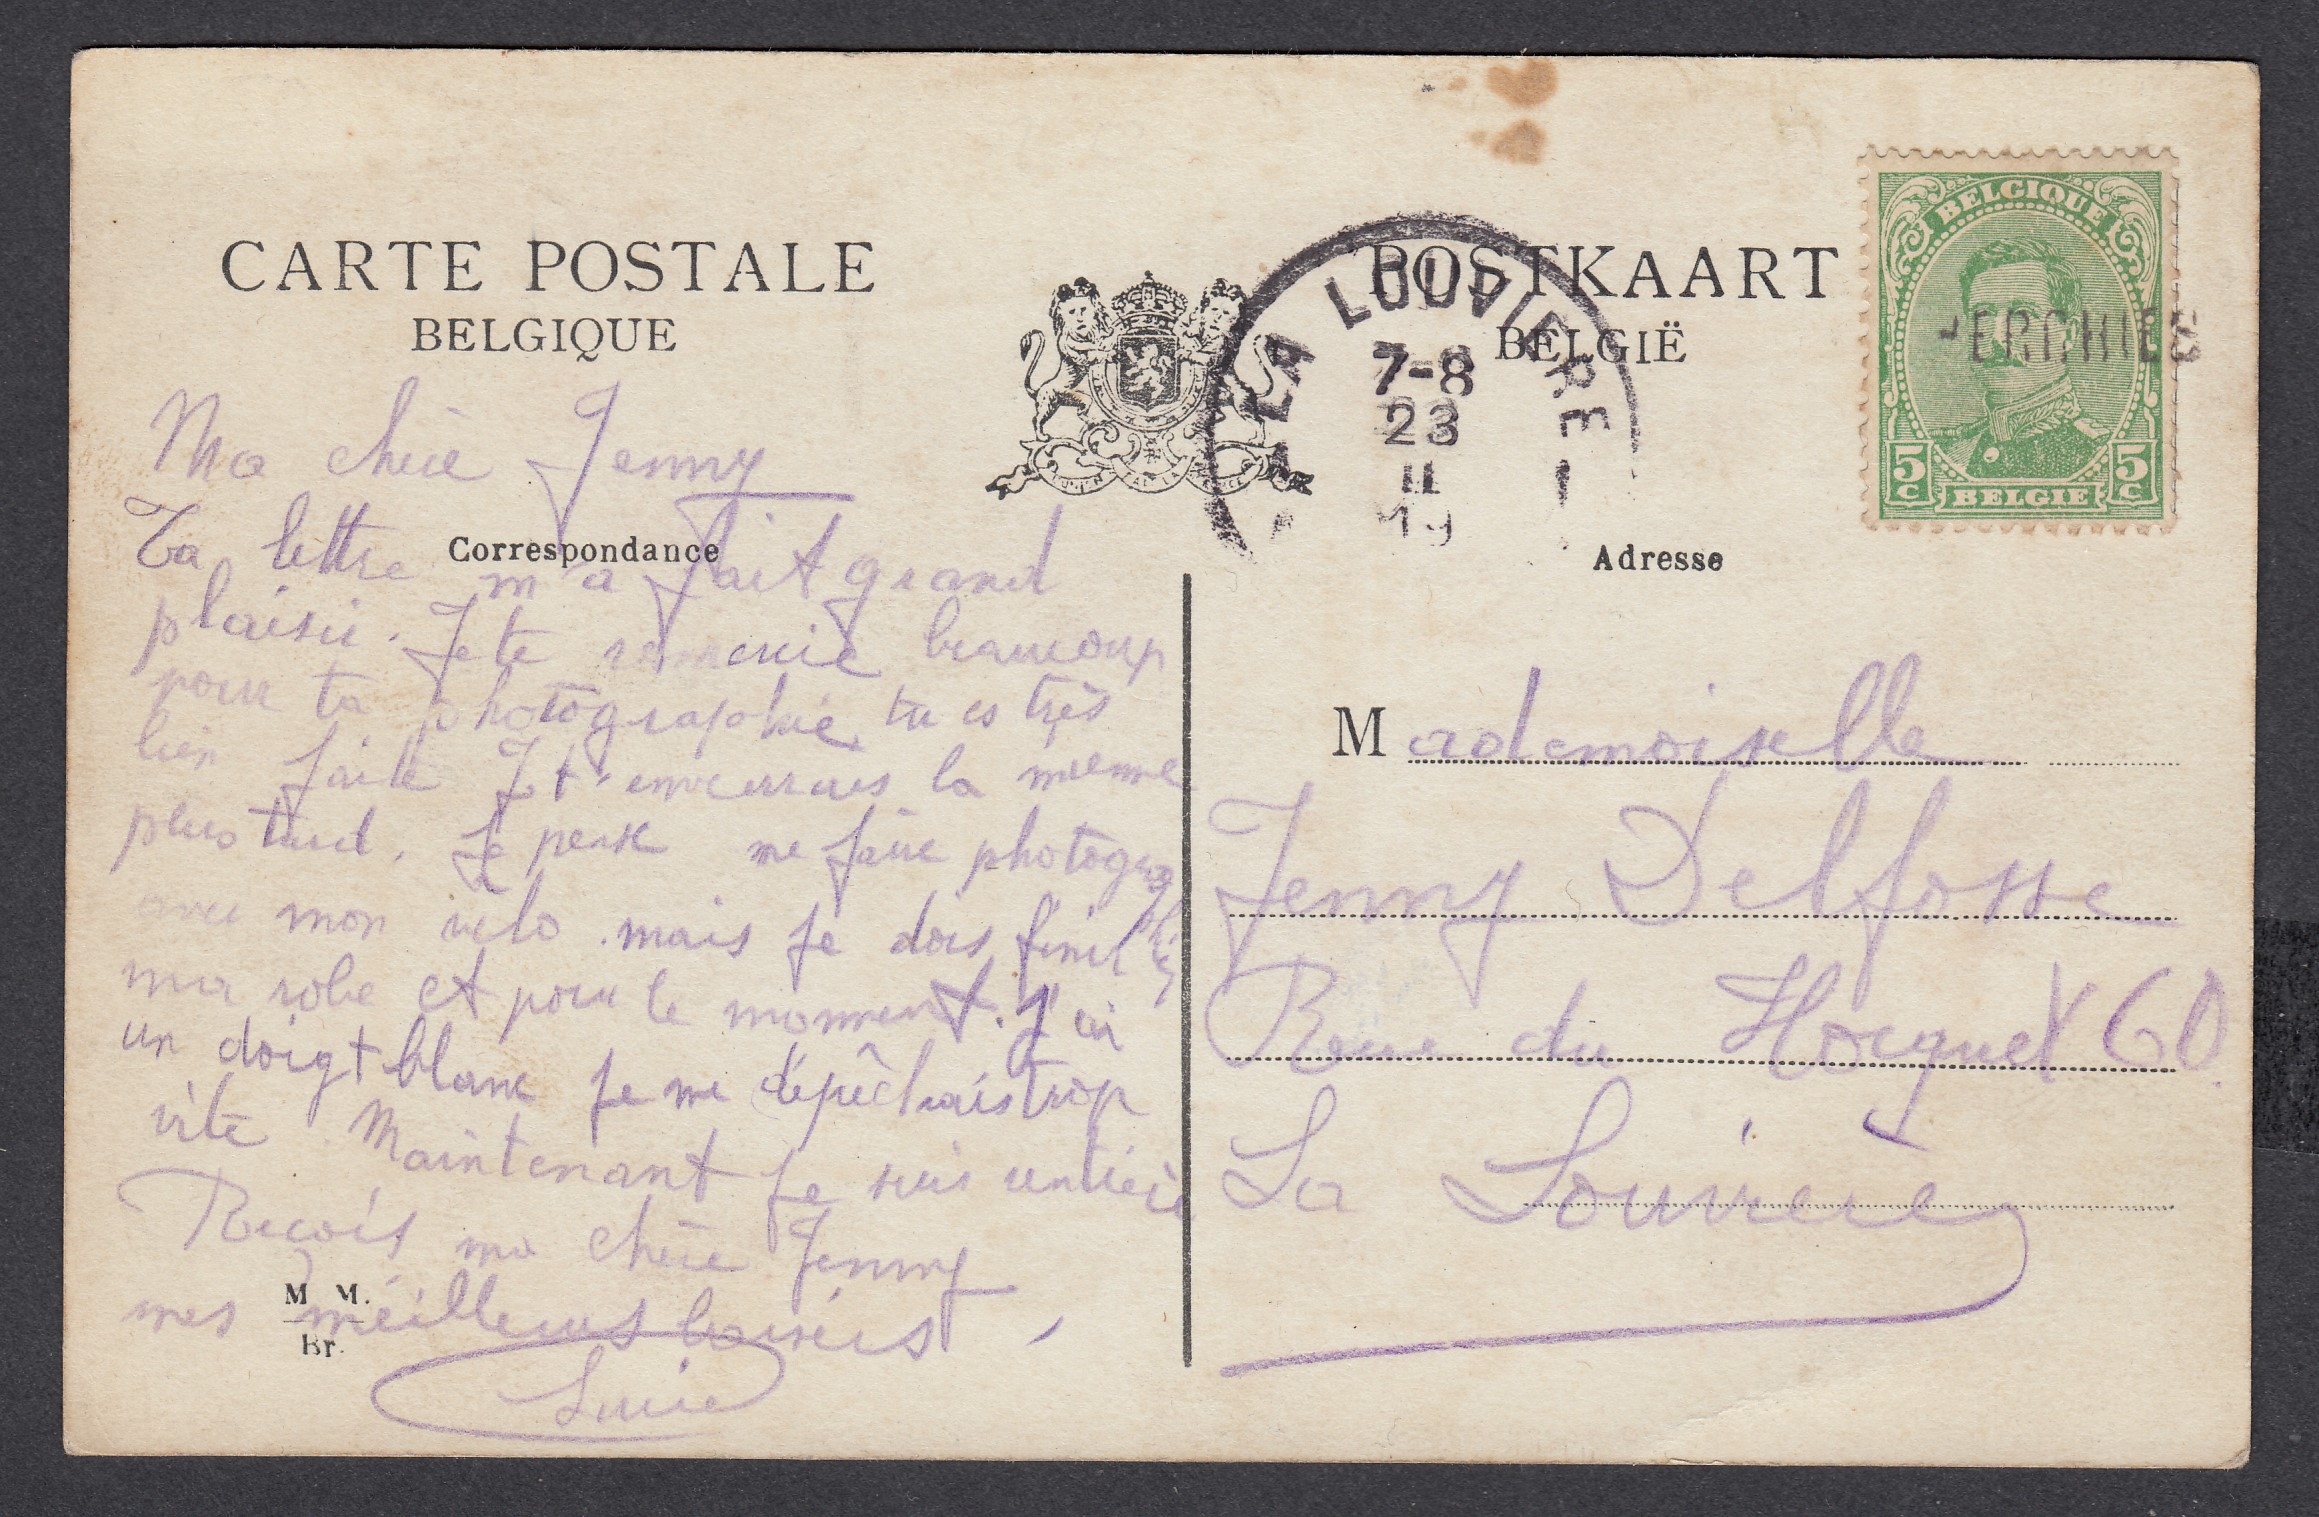 CARTE POSTALE
BELGIQUE
POSTKAART
BELGIË
LA LOUVIERE
7-8
23
II
19
BELGIQUE
5c
BELGIE
5c
ERCHIES
Correspondance
Adresse
Ma chère Jenny
Ta lettre m'a fait grand
plaisir. Je te remercie beaucoup
pour ta photographie, tu es très
bien faite Je t'enverrais la mienne
plus tard. Je pense me faire photographier
avec mon vélo. mais je dois finir
ma robe et pour le moment. J'ai
un doigt blanc je me dépêchais trop
vite Maintenant je suis
Reçois ma chère Jenny
mes meilleurs baisers
M. M.
Br.
Mademoiselle
Jenny Delfosse
Rue du Hocquet 60
La Louvière